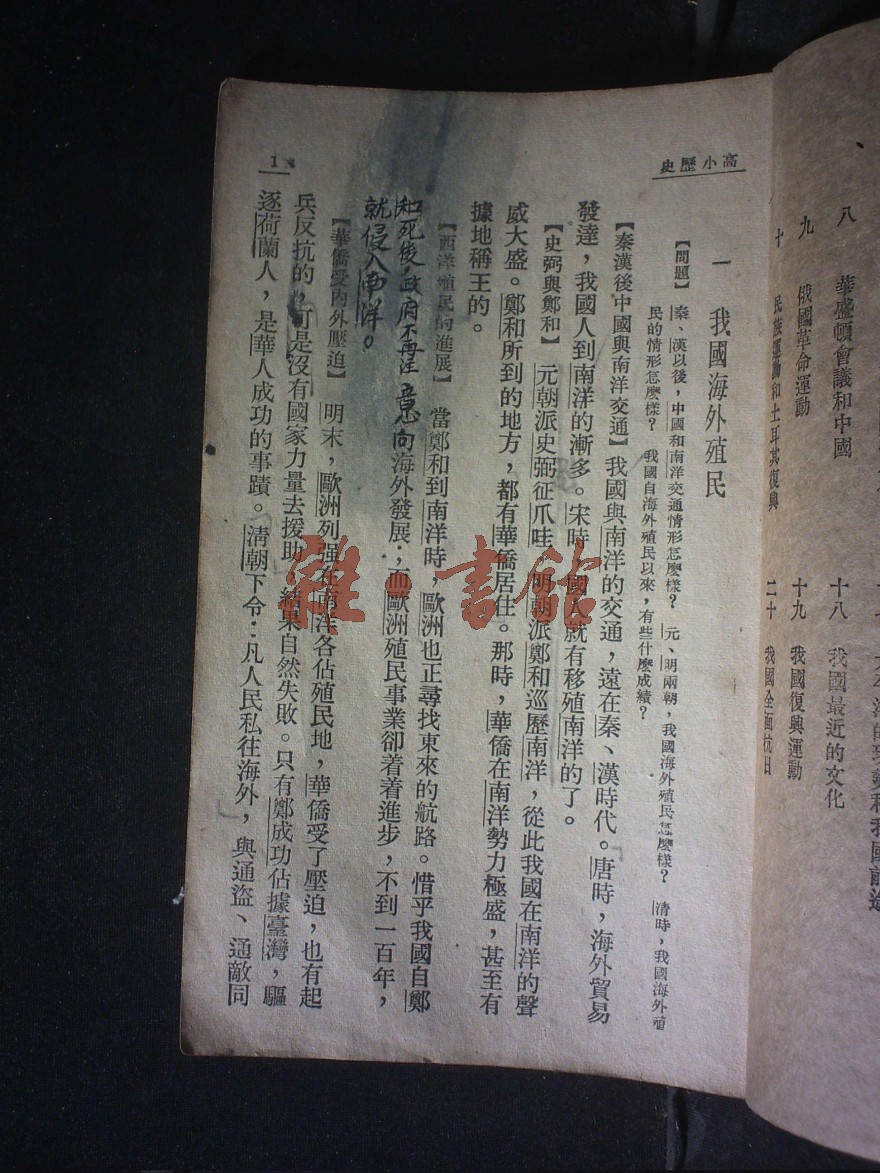 高小歷史
一 我國海外殖民
【問題】 秦、漢以後，中國和南洋交通情形怎麼樣？ 元、明兩朝，我國海外殖民怎麼樣？ 清時，我國海外殖
民的情形怎麼樣？ 我國自海外殖民以來，有些什麼成績？
【秦漢後中國與南洋交通】我國與南洋的交通，遠在秦、漢時代。唐時，海外貿易
發達，我國人到南洋的漸多。宋時，國人就有移殖南洋的了。
【史弼與鄭和】 元朝派史弼征爪哇，明朝派鄭和巡歷南洋，從此我國在南洋的聲
威大盛。鄭和所到的地方，都有華僑居住。那時，華僑在南洋勢力極盛，甚至有
據地稱王的。
【西洋殖民的進展】 當鄭和到南洋時，歐洲也正尋找東來的航路。惜乎我國自鄭
和死後，政府不再注意向海外發展；而歐洲殖民事業卻着着進步，不到一百年，
就侵入南洋。
【華僑受內外壓迫】 明末，歐洲列强在南洋各佔殖民地，華僑受了壓迫，也有起
兵反抗的，可是沒有國家力量去援助，結果自然失敗。只有鄭成功佔據臺灣，驅
逐荷蘭人，是華人成功的事蹟。清朝下令：凡人民私往海外，與通盜、通敵同
1
八 華盛頓會議和中國
九 俄國革命運動
十 民族運動和土耳其復興
十八 我國最近的文化
十九 我國復興運動
二十 我國全面抗日
雜·書館